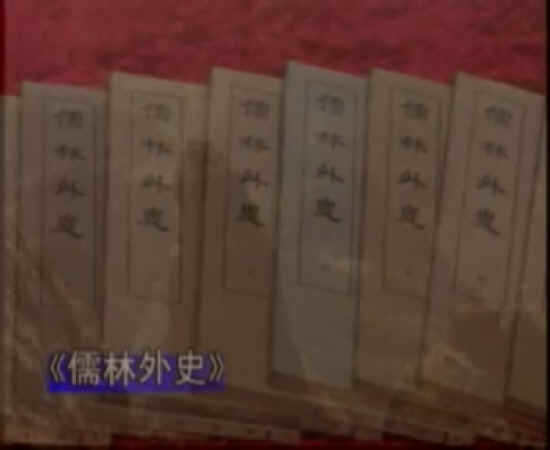 儒林外史
儒林外史
儒林外史
儒林外史
儒林外史
儒林外史
《儒林外史》